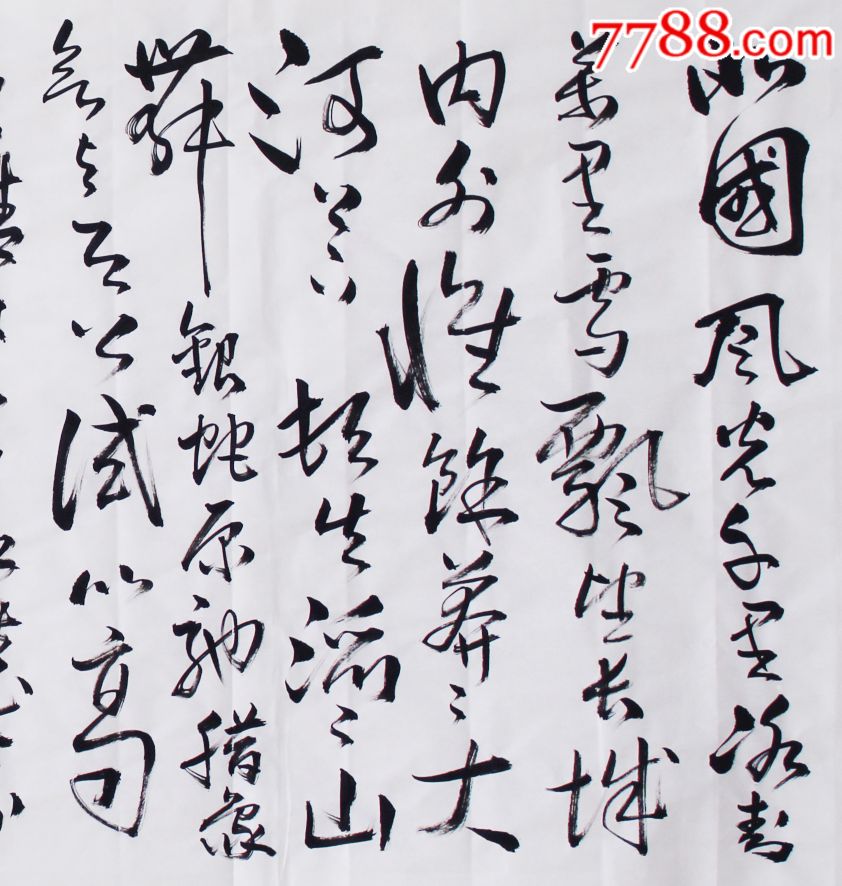 7788.com
北國風光千里冰封
萬里雪飄望长城
内外惟餘莽々大
河上下頓失滔々山
舞銀蛇原馳腊象
欲与天公試比高